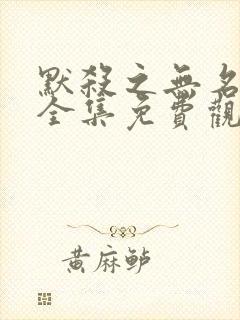 默殺之無名
全集免費觀
黃麻鲈